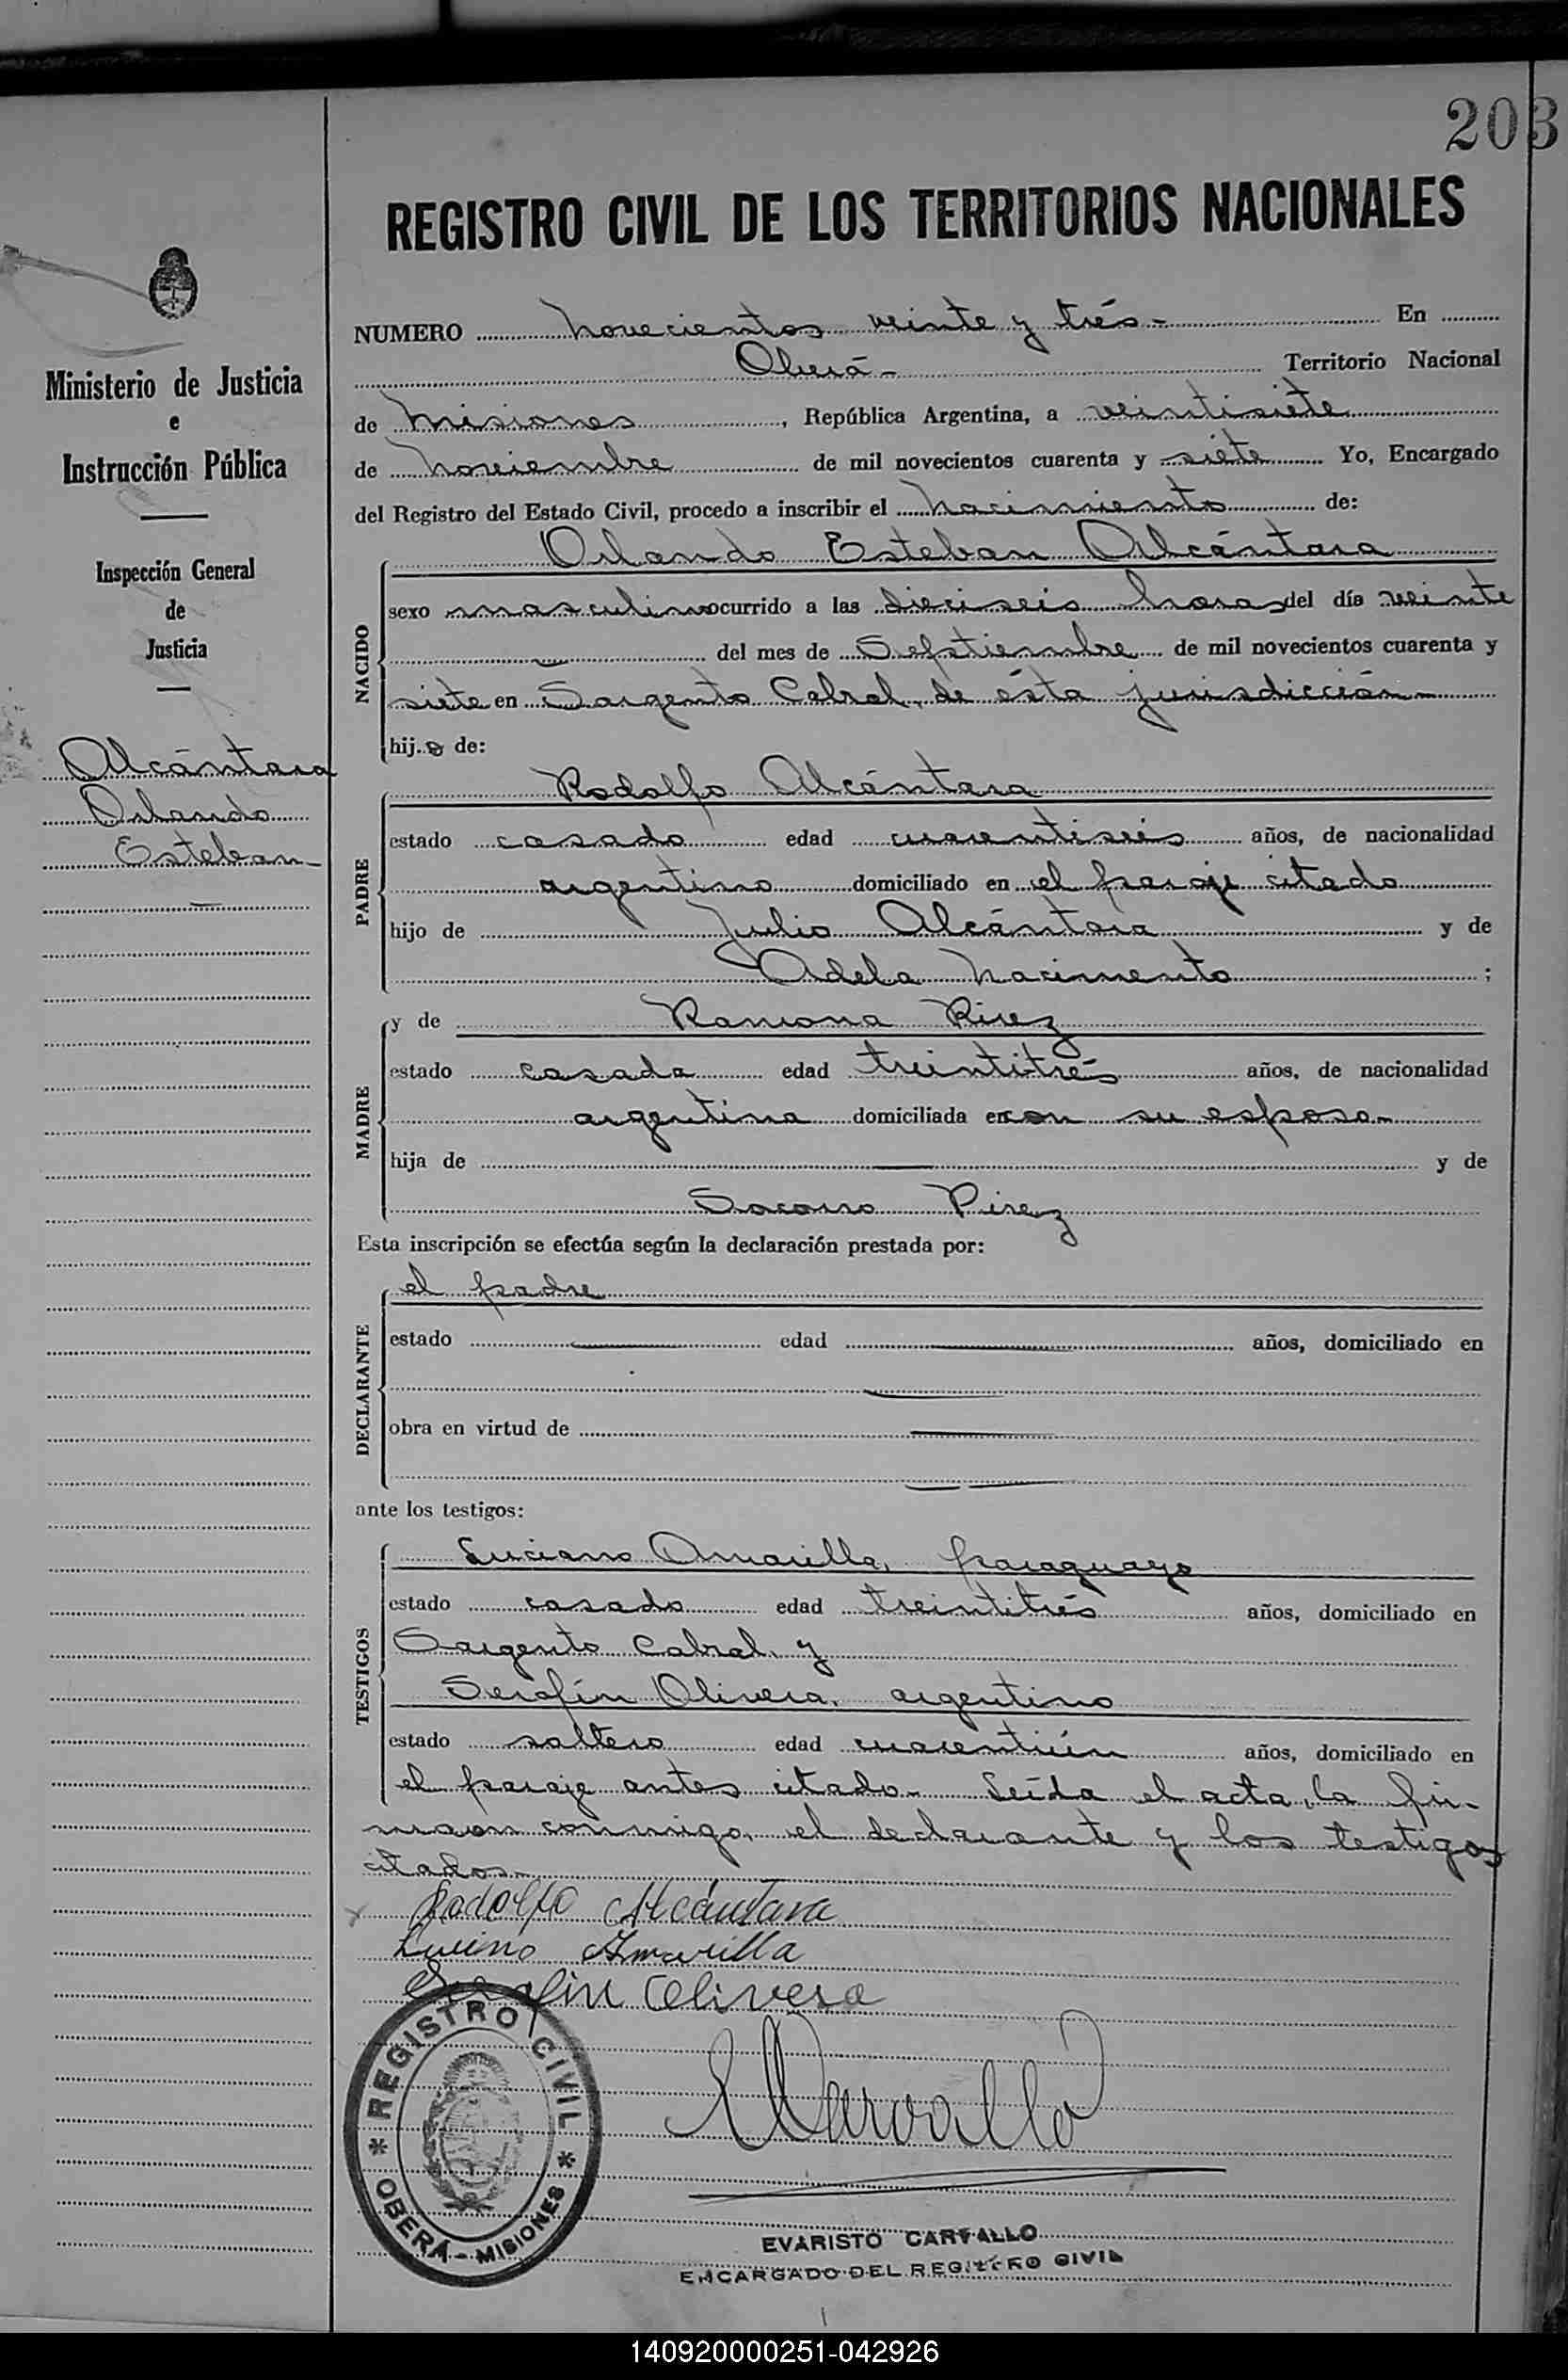 203
REGISTRO CIVIL DE LOS TERRITORIOS NACIONALES
Ministerio de Justicia
e
Instrucción Pública
Inspección General
de
Justicia
Alcántara
Orlando
Esteban
NUMERO novecientos veinte y trés - En
Oberá - Territorio Nacional
de Misiones, República Argentina, a veintisiete
de noviembre de mil novecientos cuarenta y siete Yo, Encargado
del Registro del Estado Civil, procedo a inscribir el nacimiento de:
NACIDO
Orlando Esteban Alcántara
sexo masculino ocurrido a las dieciseis horas del día veinte
del mes de Septiembre de mil novecientos cuarenta y
siete en Sargento Cabral, de ésta jurisdicción
hijo de:
PADRE
Rodolfo Alcántara
estado casado edad años, de nacionalidad
argentino domiciliado en el paraje citado
hijo de Julio Alcántara y de
Adela Nacimento ;
MADRE
y de Ramona Pirez
estado casada edad treintitrés años, de nacionalidad
argentina domiciliada en con su esposo
hija de y de
Socorro Pirez
Esta inscripción se efectúa según la declaración prestada por:
DECLARANTE
el padre
estado edad años, domiciliado en
obra en virtud de
ante los testigos:
TESTIGOS
Luciano Amarilla, paraguayo
estado casado edad treintitrés años, domiciliado en
Sargento Cabral y
Serafín Olivera, argentino
estado soltero edad cuarentiún años, domiciliado en
el paraje antes citado - Leída el acta, la fir-
maron conmigo, el declarante y los testigos
citados -
Rodolfo Alcántara
Lucino Amarilla
Serafin Olivera
ECarvallo
REGISTRO CIVIL
OBERA - MISIONES
EVARISTO CARVALLO
ENCARGADO DEL REGISTRO CIVIL
140920000251-042926